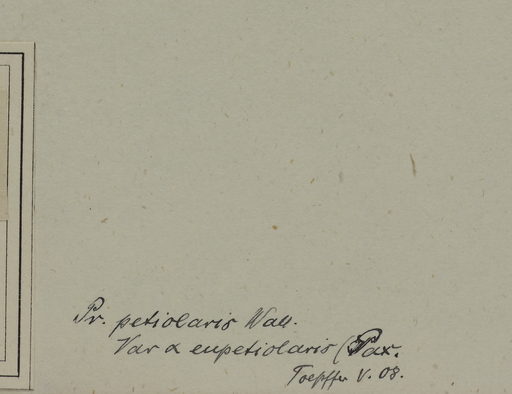 Pr. petiolaris Wall.
Var α eupetiolaris (Pax.
Toepffer V. 08.